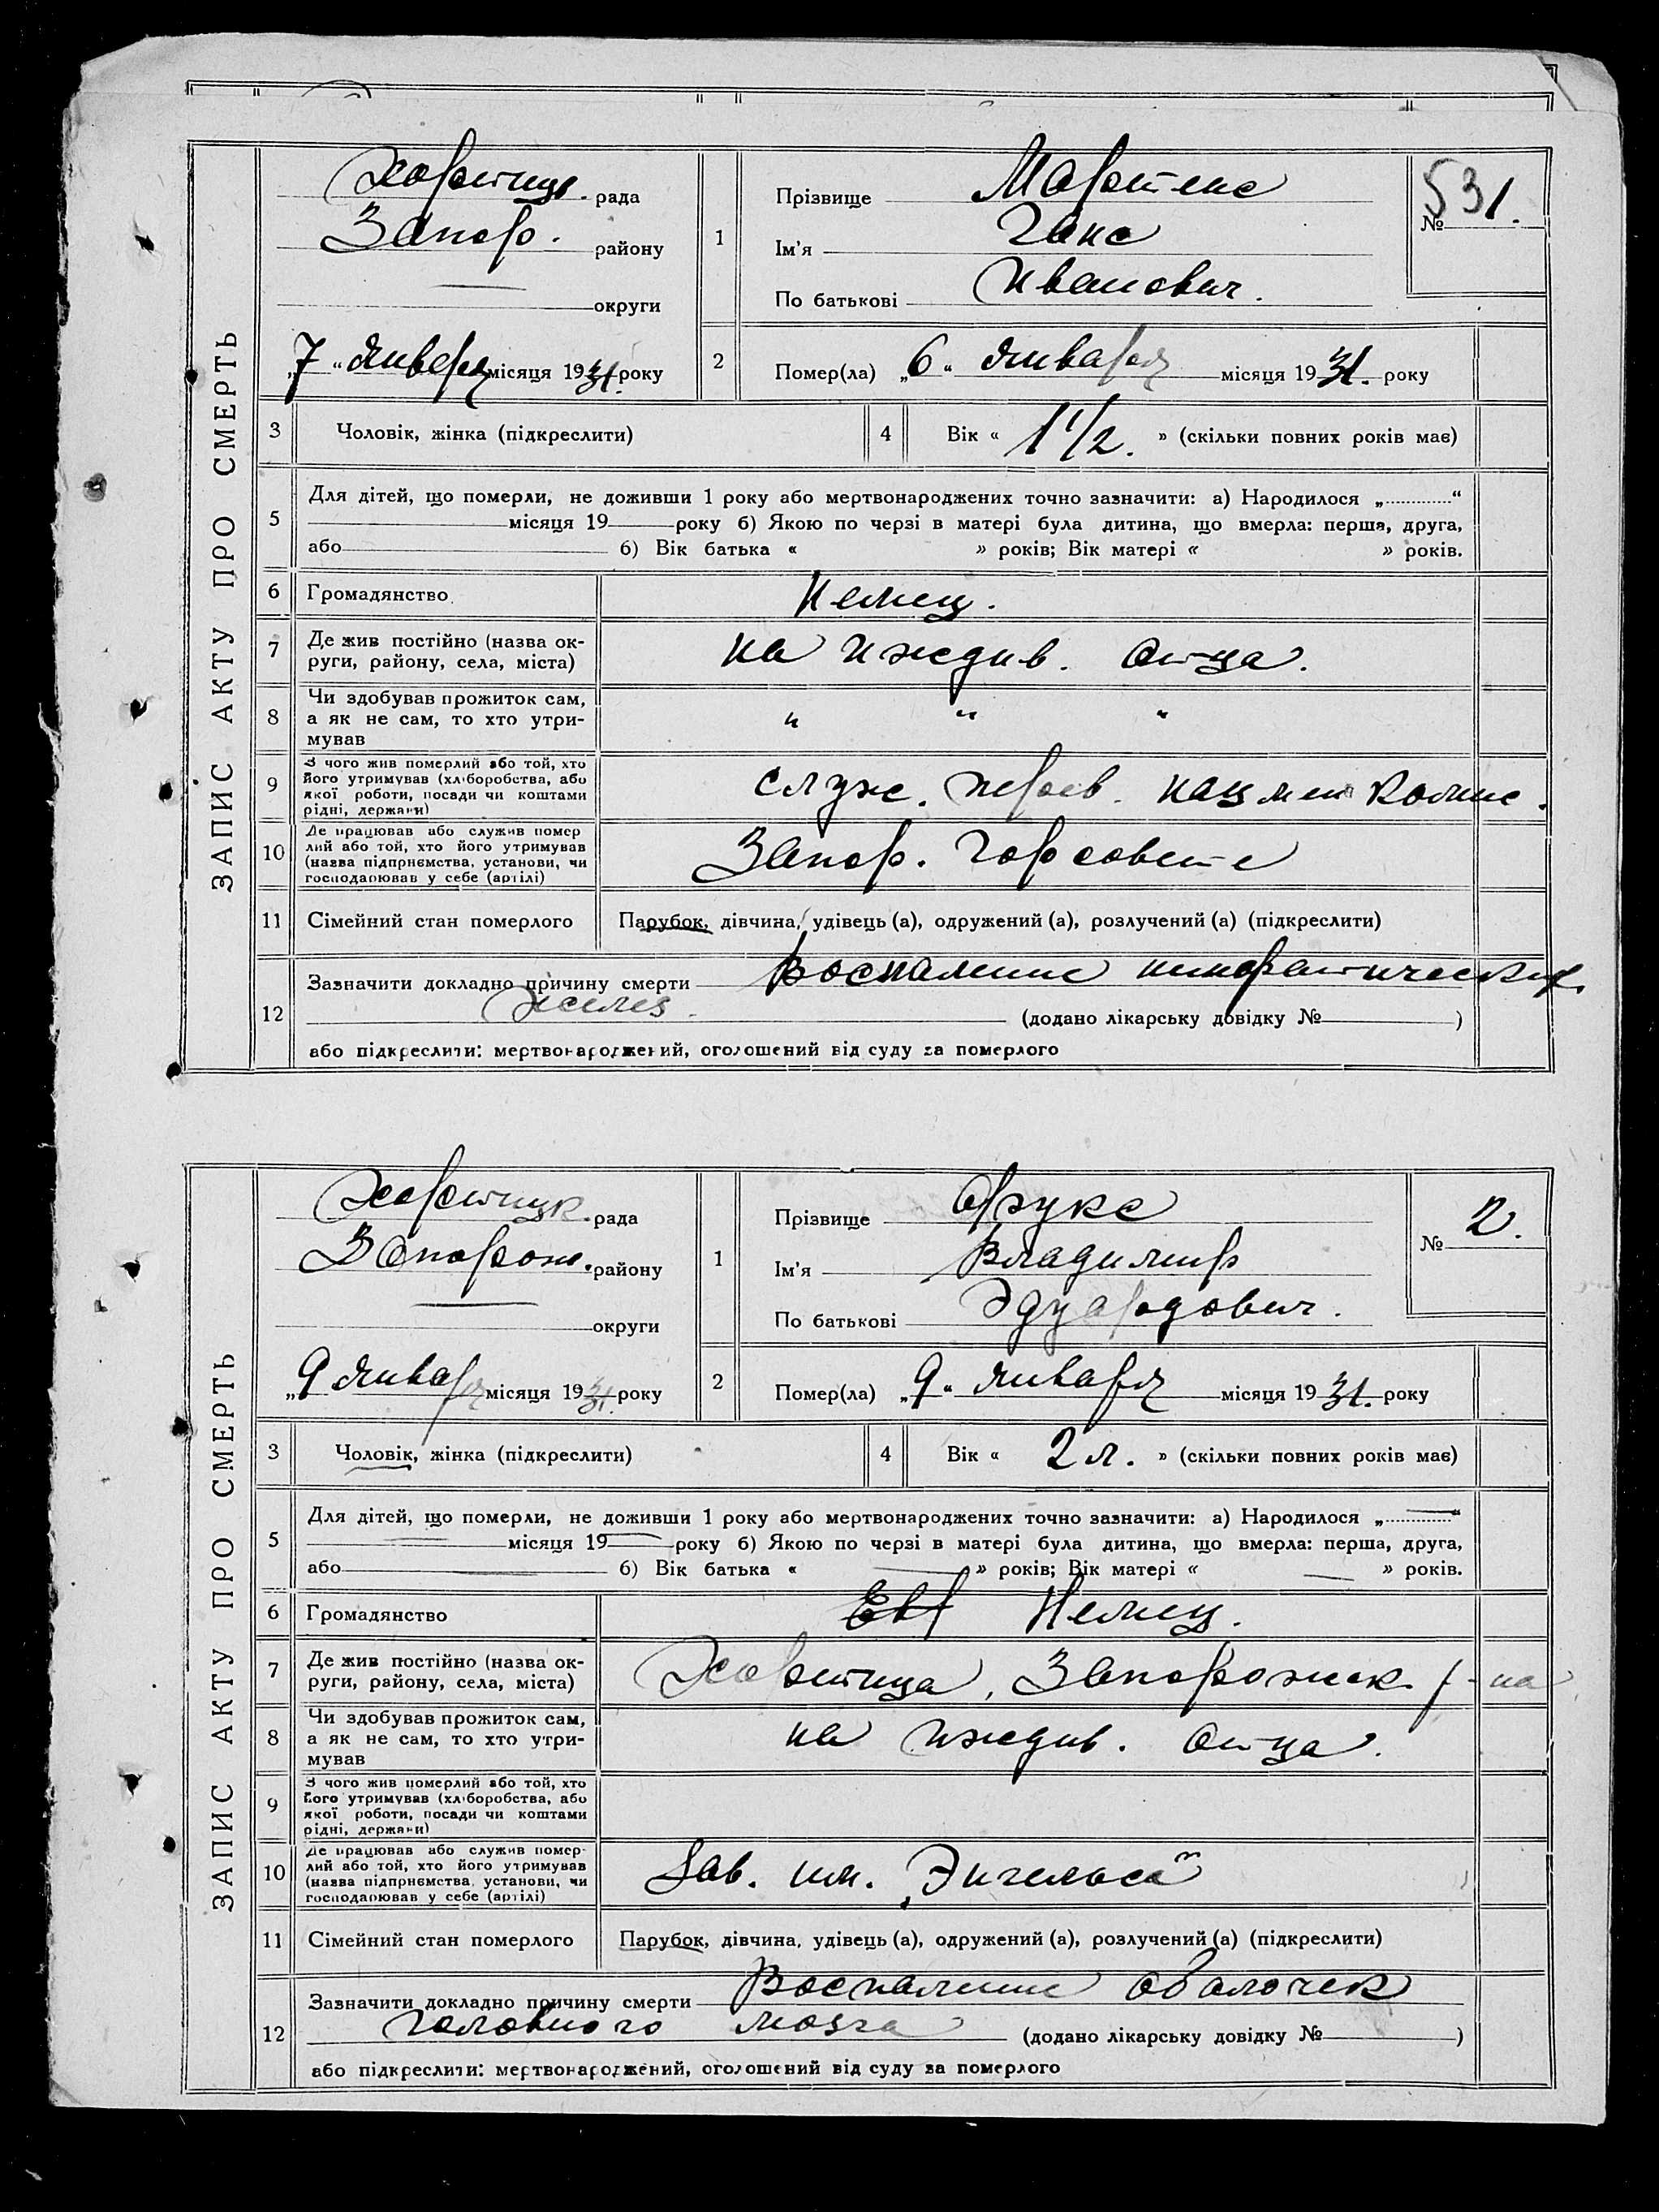 ЗАПИС АКТУ ПРО СМЕРТЬ
Хортицк. рада
Запор. району
округи
„7“ января місяця 1931 року
1
Прізвище Мартенс
Ім'я Ганс
По батькові Иванович.
№ 1.
53
2
Помер(ла) „6“ января місяця 1931. року
3 Чоловік, жінка (підкреслити)
4 Вік « 1 1/2. » (скільки повних років має)
5
Для дітей, що померли, не доживши 1 року або мертвонароджених точно зазначити: а) Народилося „............“
місяця 19 року б) Якою по черзі в матері була дитина, що вмерла: перша, друга,
або б) Вік батька « » років; Вік матері « » років.
6 Громадянство Немец.
7 Де жив постійно (назва ок-
руги, району, села, міста)
на иждив. отца.
8 Чи здобував прожиток сам,
а як не сам, то хто утри-
мував
" " "
9 З чого жив померлий або той, хто
його утримував (хліборобства, або
якої роботи, посади чи коштами
рідні, держави)
служ. нацмен комис.
10 Де працював або служив помер
лий або той, хто його утримував
(назва підприємства, установи, чи
господарював у себе (артілі)
Запор. Горсовете
11 Сімейний стан померлого Парубок, дівчина, удівець (а), одружений (а), розлучений (а) (підкреслити)
12
Зазначити докладно причину смерти Воспаление
желез. (додано лікарську довідку № )
або підкреслити: мертвонароджений, оголошений від суду за померлого
ЗАПИС АКТУ ПРО СМЕРТЬ
Хортицк. рада
Запорож. району
округи
„9 января місяця 1931. року
1
Прізвище Фукс
Ім'я Владимир
По батькові Эдуардович.
№ 2.
2
Помер(ла) „9“ января місяця 1931. року
3 Чоловік, жінка (підкреслити)
4 Вік « 2 л. » (скільки повних років має)
5
Для дітей, що померли, не доживши 1 року або мертвонароджених точно зазначити: а) Народилося „............“
місяця 19 року б) Якою по черзі в матері була дитина, що вмерла: перша, друга,
або б) Вік батька « » років; Вік матері « » років.
6 Громадянство Евр Немец.
7 Де жив постійно (назва ок-
руги, району, села, міста)
Хортица, Запорожск. р-на
8 Чи здобував прожиток сам,
а як не сам, то хто утри-
мував
на иждив. отца.
9 З чого жив померлий або той, хто
його утримував (хліборобства, або
якої роботи, посади чи коштами
рідні, держави)
10 Де працював або служив помер-
лий або той, хто його утримував
(назва підприємства, установи, чи
господарював у себе (артілі)
Зав. им. „Энгельса“
11 Сімейний стан померлого Парубок, дівчина, удівець (а), одружений (а), розлучений (а) (підкреслити)
12
Зазначити докладно причину смерти Воспаление оболочек
головного мозга (додано лікарську довідку № )
або підкреслити: мертвонароджений, оголошений від суду за померлого